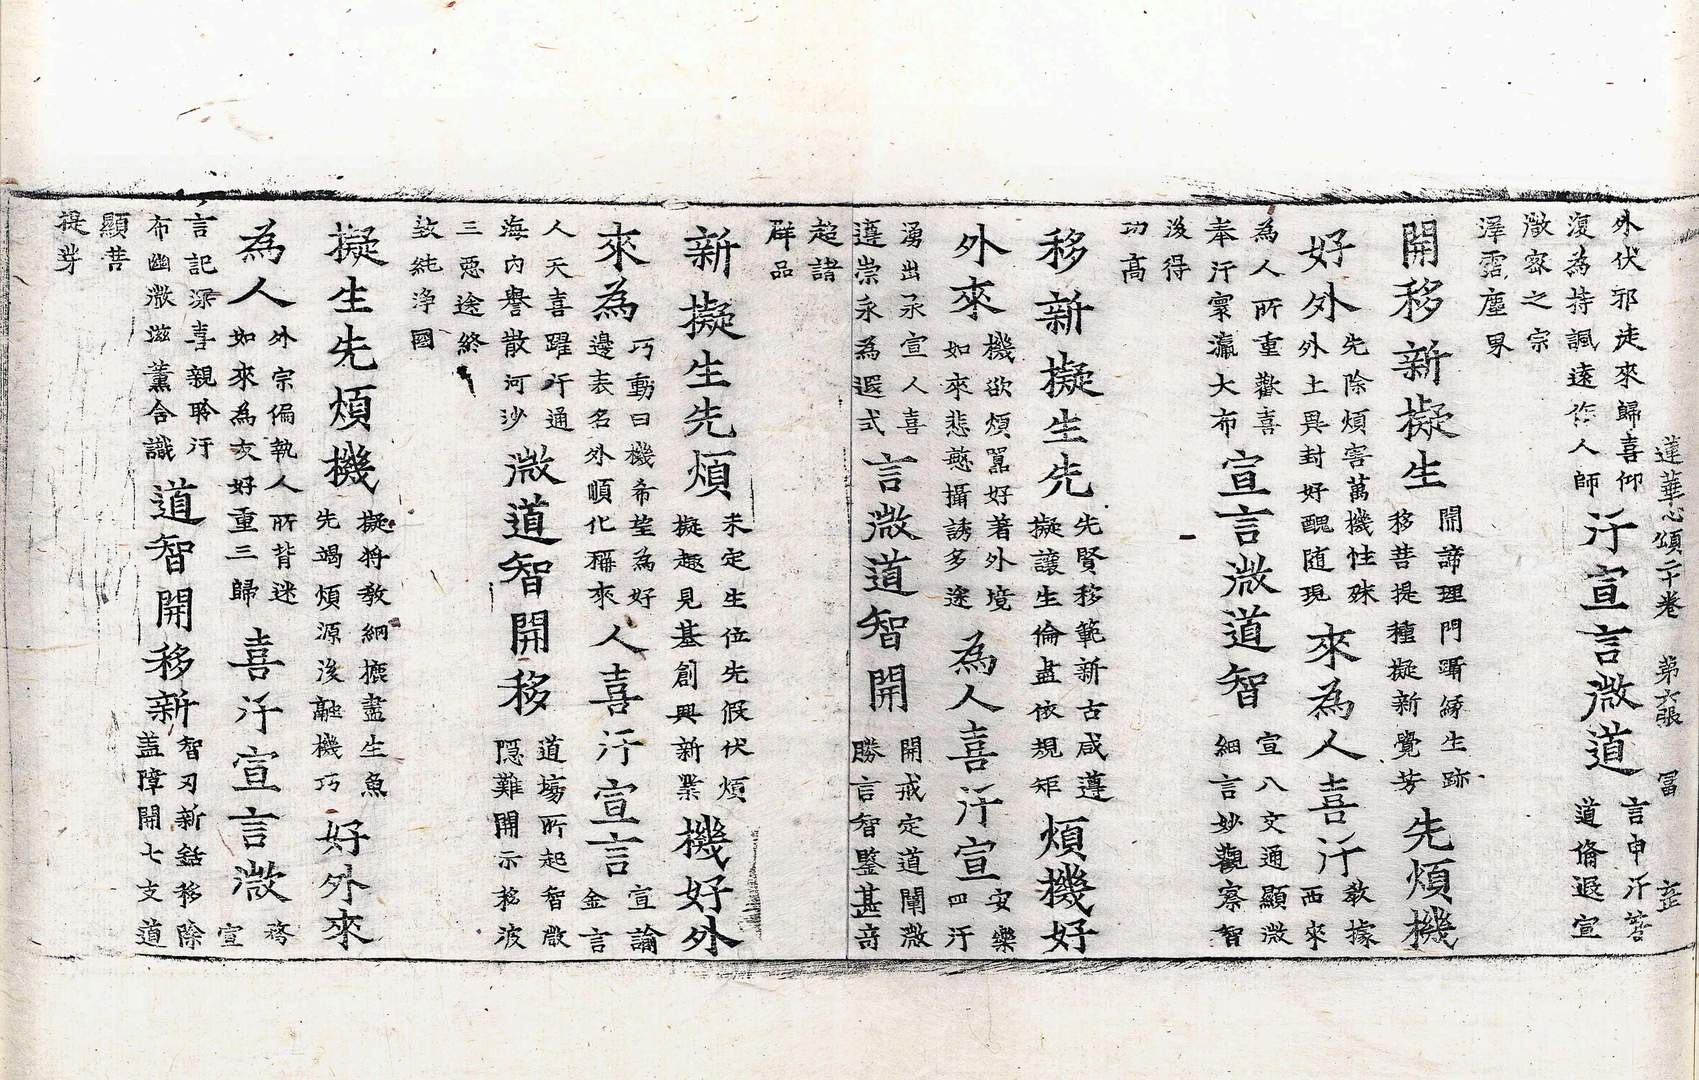 蓮華心頌二十卷 第六張 冨
外伏邪徒來歸喜仰
復為持諷遠作人師
汙宣言溦道
言申汙荅
道脩遐宣
溦密之宗
澤霑塵界
開移新擬生
開諦理門 生跡
移菩提種擬新覺芳
先煩機
好外
先除煩害萬機性殊
外土異封好醜随現
來為人喜汙
教據
西來
為人所重歡喜
奉汙寰瀛大布
宣言溦道智
宣八文通顯溦
細言妙觀察智
後得
功高
移新擬生先
先賢移範新古咸遵
擬讓生倫盡依規矩
煩機好
外來
機欲煩嚚好著外境
如來悲愍攝誘多途
為人喜汙宣
安樂
四汙
湧出承宣人喜
遵崇永為遐式
言溦道智開
開戒定道闡溦
勝言智鑒甚奇
超諸
群品
新擬生先煩
未定生位先假伏煩
擬趣見基創興新業
機好外
來為
巧動曰機希望為好
邊表名外順化稱來
人喜汙宣言
宣論
金言
人天喜躍汙通
海內譽散河沙
溦道智開移
道塲所起智啟
隠難開示移波
三惡途終
致純淨國
擬生先煩機
擬將教網摝盡生魚
先竭煩源後融機巧
好外來
為人
外宗偏執人所背迷
如來為友好重三歸
喜汙宣言溦
務
宣
言記深喜親聆汙
布幽溦滋薰合識
道智開移新
智刃新銛移除
盖障開七支道
顯菩
提芽